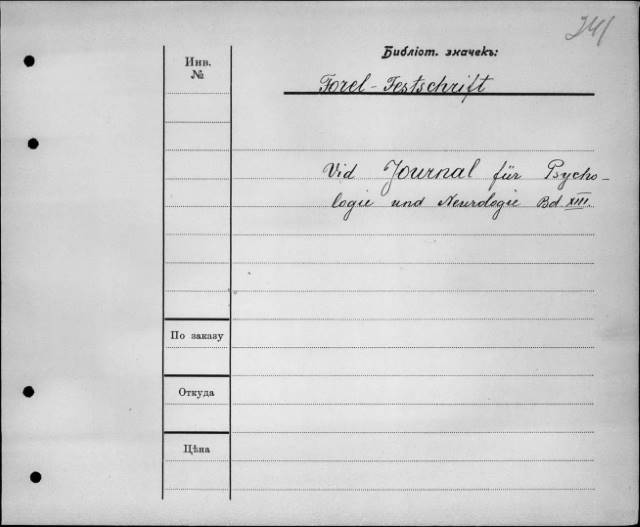 241
Библіот. значекъ:
Инв.
№
Forel-Festschrift
Vid Journal für Psycho-
logie und Neurologie Bd. XIII.
По заказу
Откуда
Цѣна